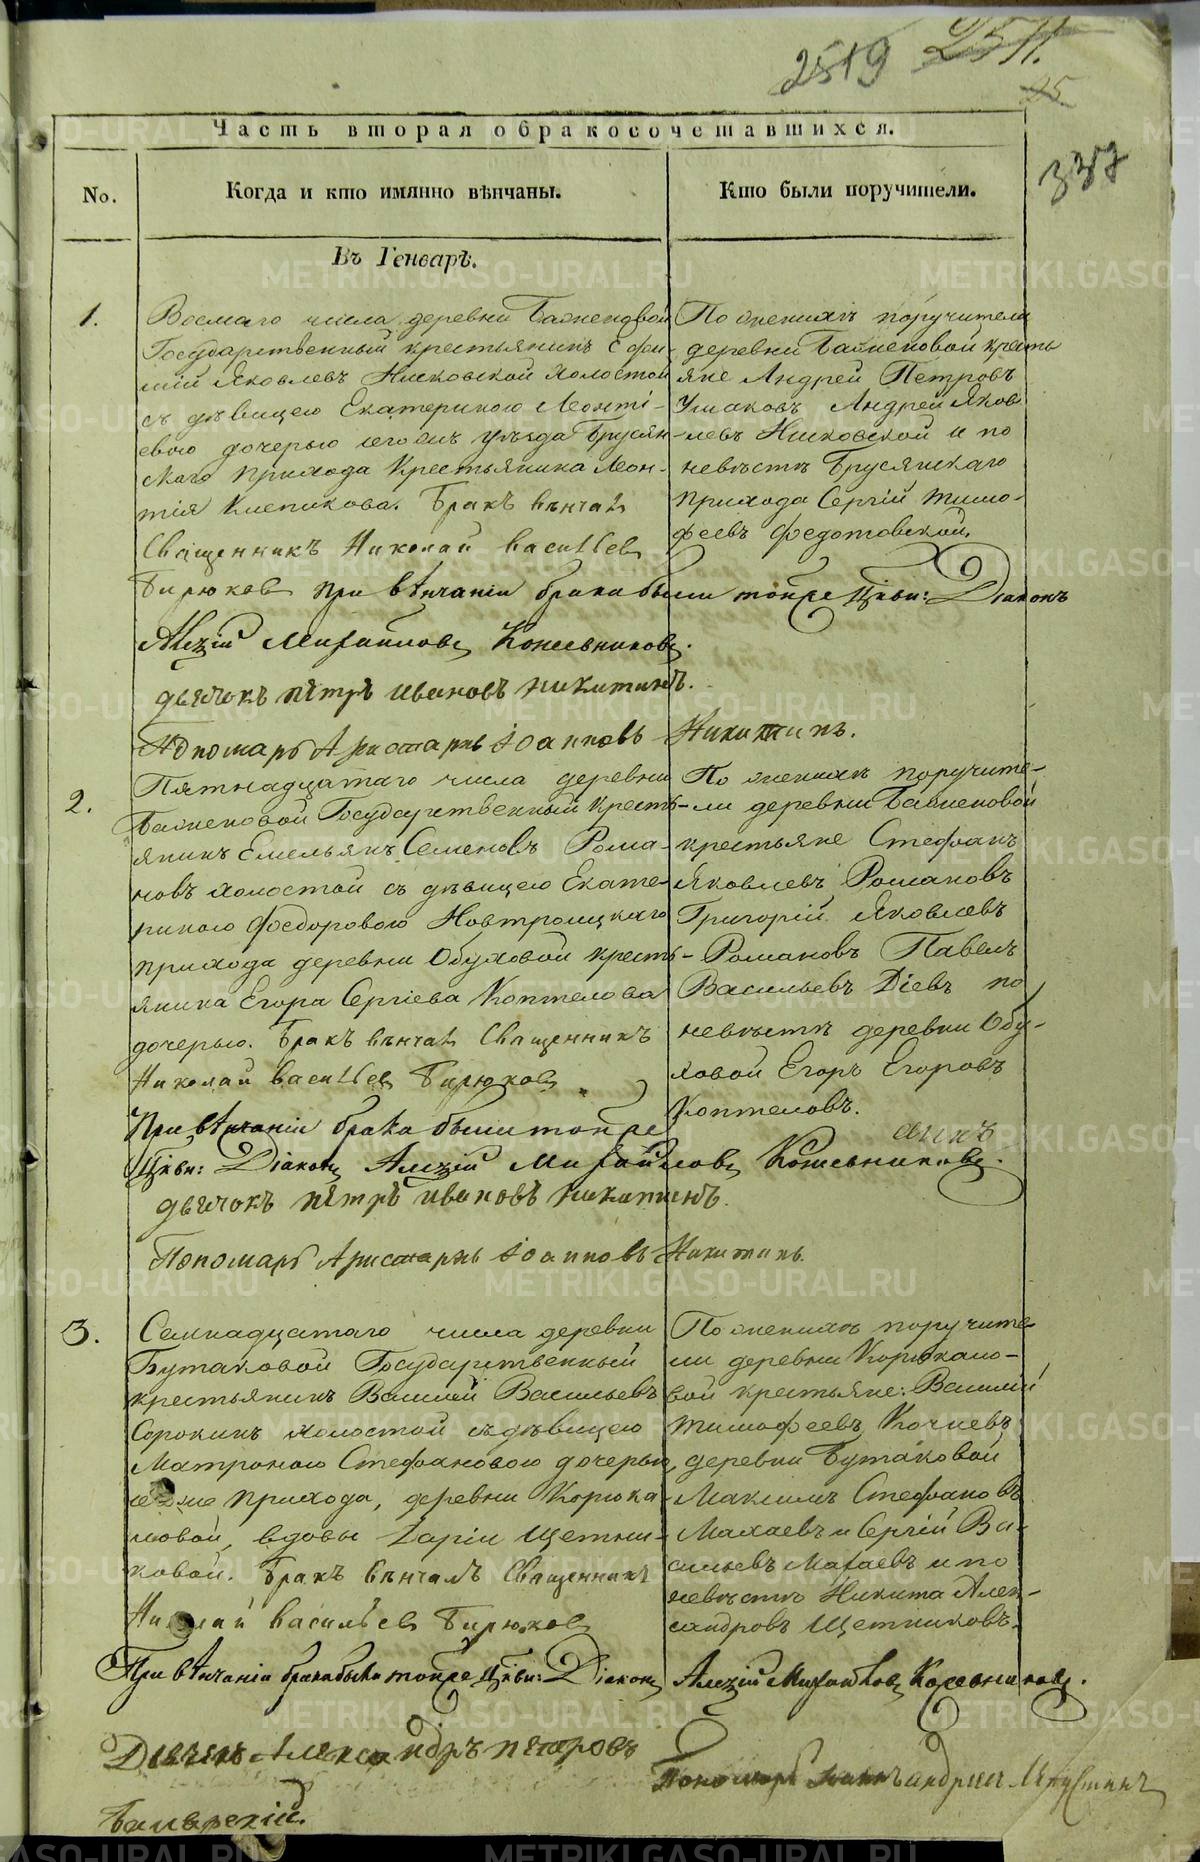 2519
25
337
Часть вторая о бракосочетавшихся.
No.
Когда и кто имянно вѣнчаны.
Кто были поручители.
Въ Генварѣ.
1.
Восмаго числа деревни Баженовой
Государственный крестьянинъ Ефи-
мій Яковлевъ холостой
съ дѣвицею Екатериною Леонті-
евою дочерью уѣзда Бруcян-
скаго прихода Крестьянина Леон-
тія Клепикова. Бракъ вѣнчалъ
Священникъ Николай Васильевъ
Бирюковъ при вѣнчаніи брака были тойже Цркви: Діаконъ
Алеѯій Михайловъ Кожевниковъ.
дьячокъ пётръ ивановъ никитинъ.
Пономарь Аристархъ Іоанновъ Никитинъ.
По женихѣ поручители
деревни Баженовой кресть
яне Андрей Петровъ
Ушаковъ Андрей Яков-
левъ и по
невѣстѣ Брусянскаго
прихода Сергій Тимо-
феевъ Федотовской.
2.
Пятнадцатаго числа деревни
Баженовой Государственный кресть-
янинъ Емельянъ Семеновъ Рома-
новъ холостой съ дѣвицею Екате-
риною Федоровою Новтроицкаго
прихода деревни Обуховой кресть-
янина Егора Сергіева Коптелова
дочерью. Бракъ вѣнчалъ Священникъ
Николай Васильевъ Бирюковъ
При вѣнчаніи брака были тойже
Цркви: Діаконъ Алеѯій Михайловъ Кожевниковъ.
дьячокъ пётръ ивановъ никитинъ.
Пономарь Аристархъ Іоанновъ Никитинъ.
По женихѣ поручите-
ли деревни Баженовой
крестьяне Стефанъ
Яковлевъ Романовъ
Григорій Яковлевъ
Романовъ Павелъ
Васильевъ Діевъ по
невѣстѣ деревни Обу-
ховой Егоръ Егоровъ
Коптеловъ.
3.
Семнадцатаго числа деревни
Бутаковой Государственный
крестьянинъ Василій Васильевъ
Сорокинъ холостой съ дѣвицею
Матроною Стефановою дочерью,
прихода, деревни Корюка-
ловой, вдовы Дарьи Щетни-
ковой. Бракъ вѣнчалъ Священникъ
Николай Васильевъ Бирюковъ
При вѣнчаніи брака были тойже Цркви: Діаконъ Алеѯій Михайловъ Кожевниковъ.
Александръ петровъ
По женихѣ поручите-
ли деревни Корюкало-
вой крестьяне: Василій
Тимофеевъ Кочневъ,
деревни Бутаковой
Максимъ Стефановъ
Махаевъ и Сергій Ва-
сильевъ Махаевъ и по
невѣстѣ Никита Алек-
сандровъ Щетниковъ.
Пономарь
METRIKI.GASO-URAL.RU